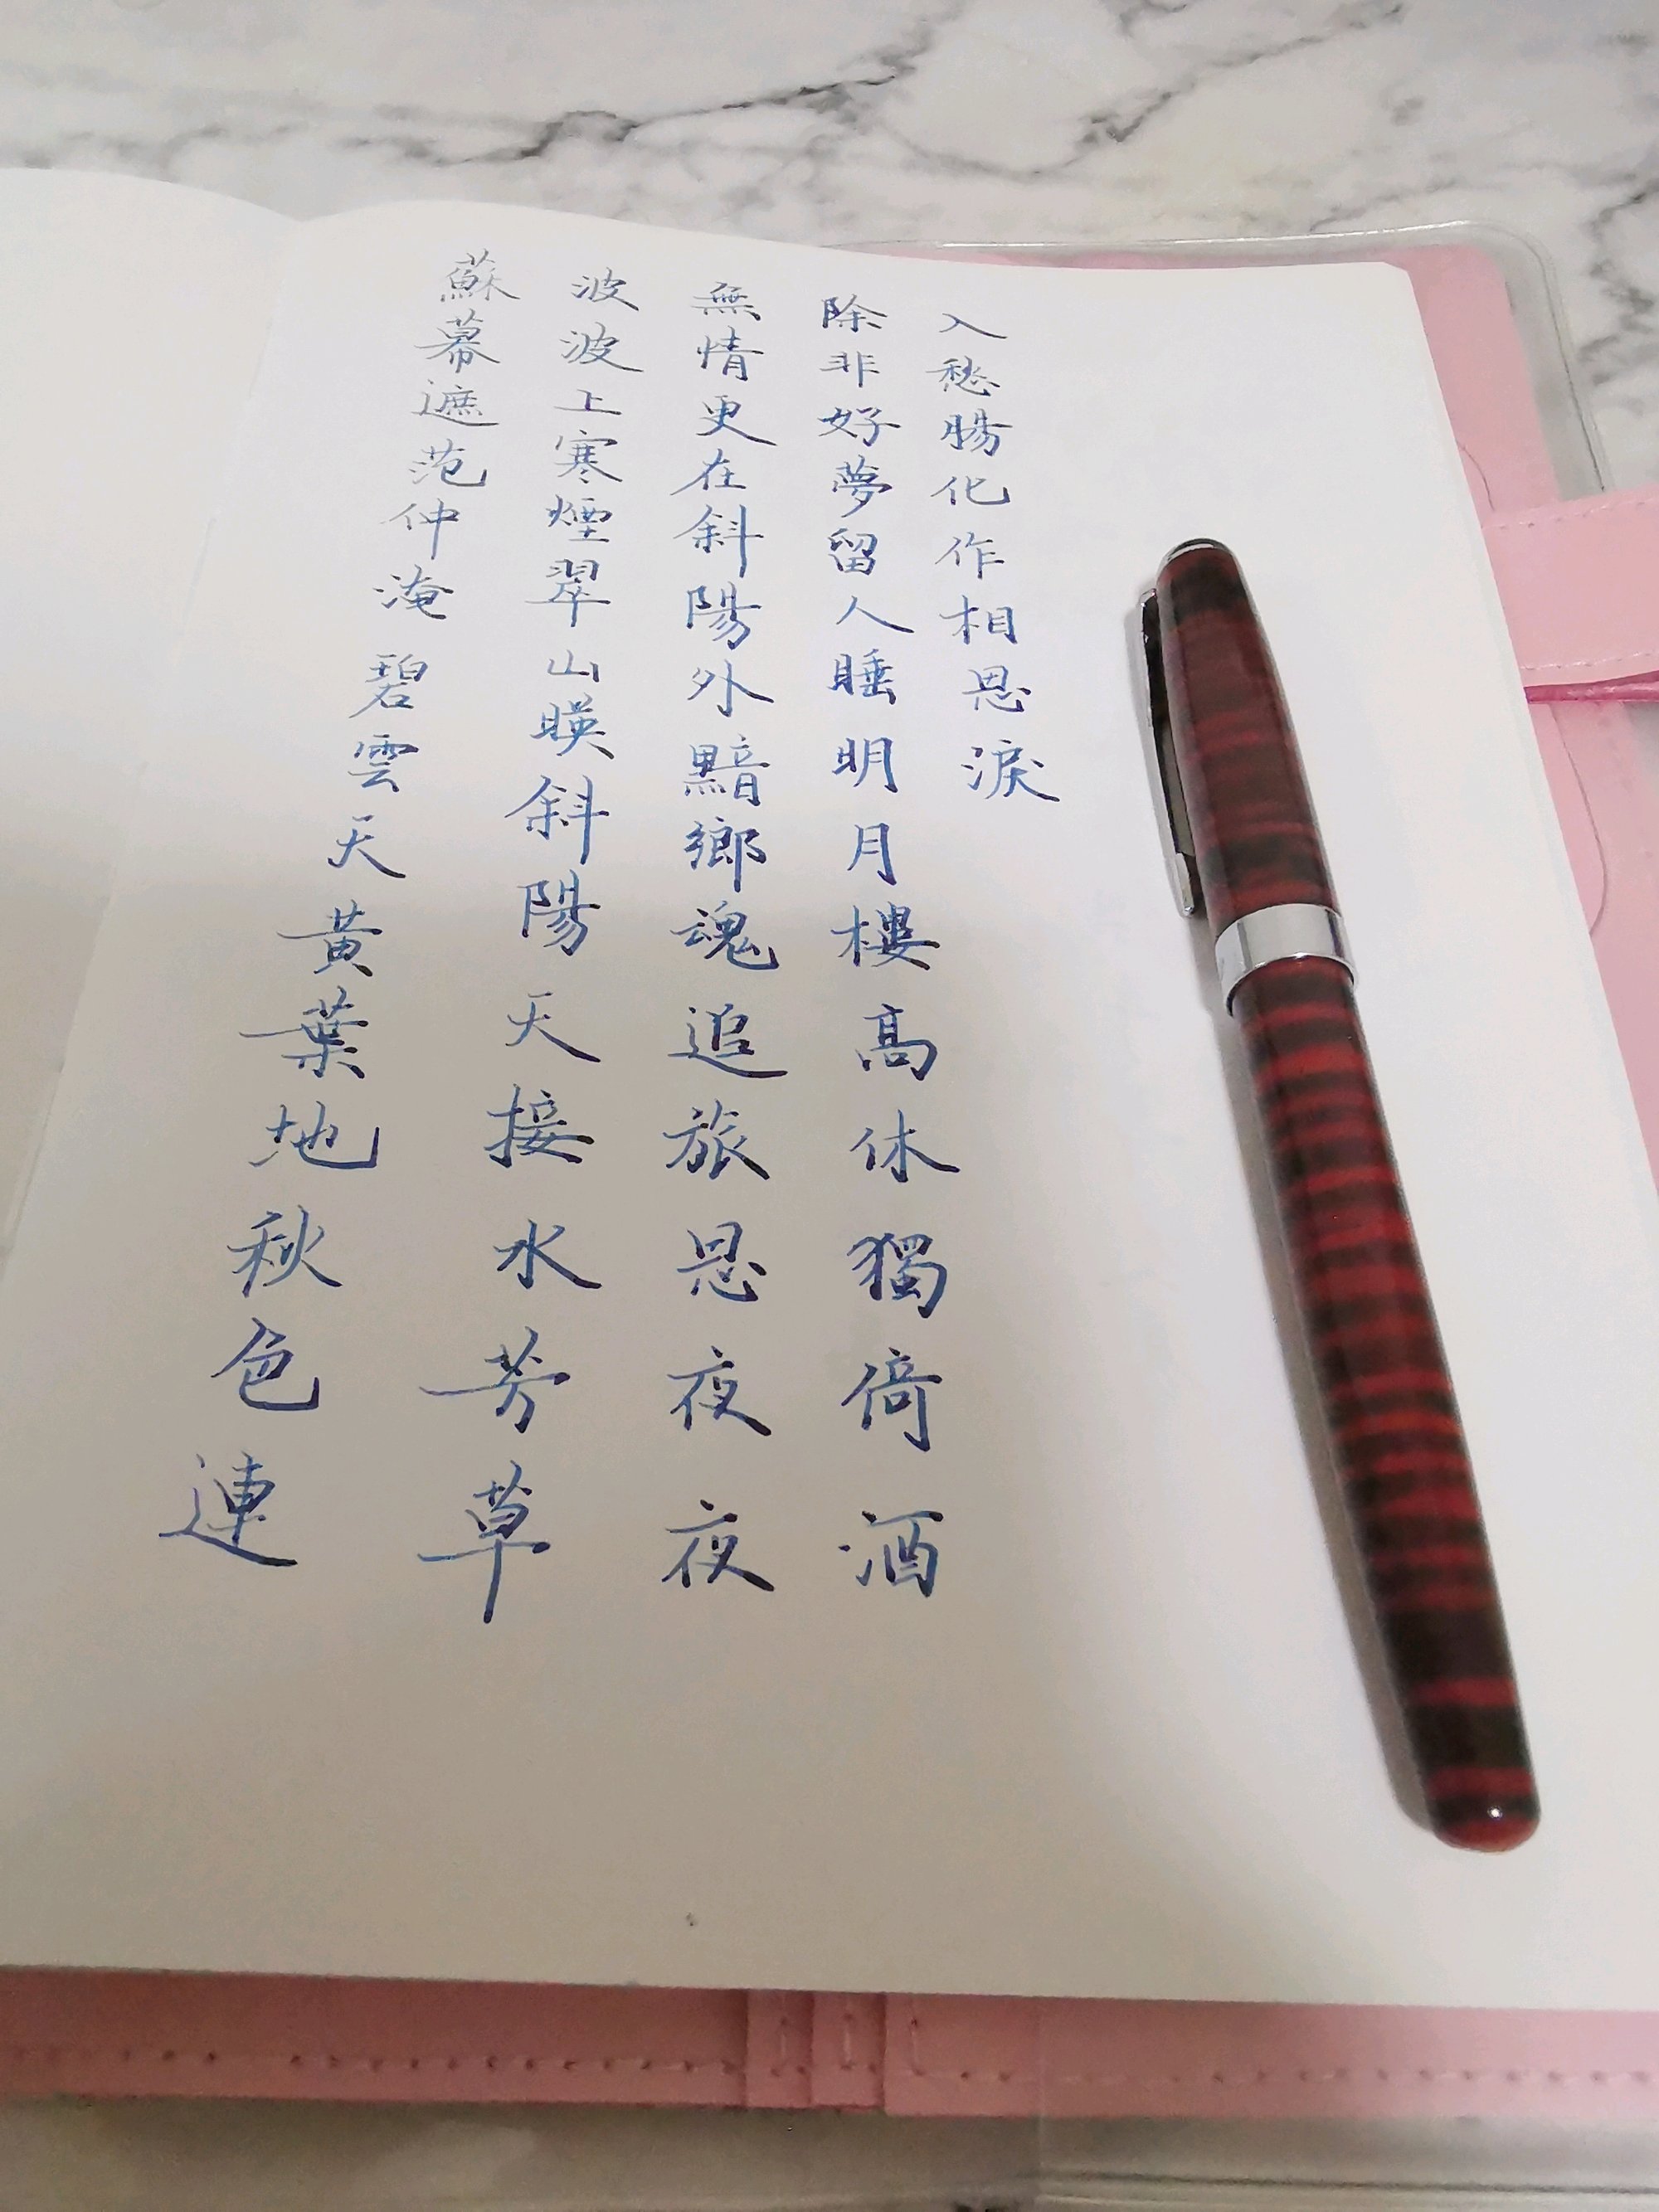 蘇幕遮范仲淹碧雲天黃葉地秋色連
波波上寒煙翠山暎斜陽天接水芳草
無情更在斜陽外黯鄉魂追旅思夜夜
除非好夢留人睡明月樓高休獨倚酒
入愁腸化作相思淚